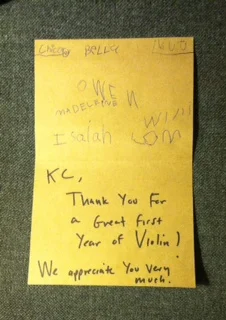 BELLA
OWEN
MADELEINE
Isaiah
KC,
Thank You For
a Great first
Year of Violin!
We appreciate You very
much.